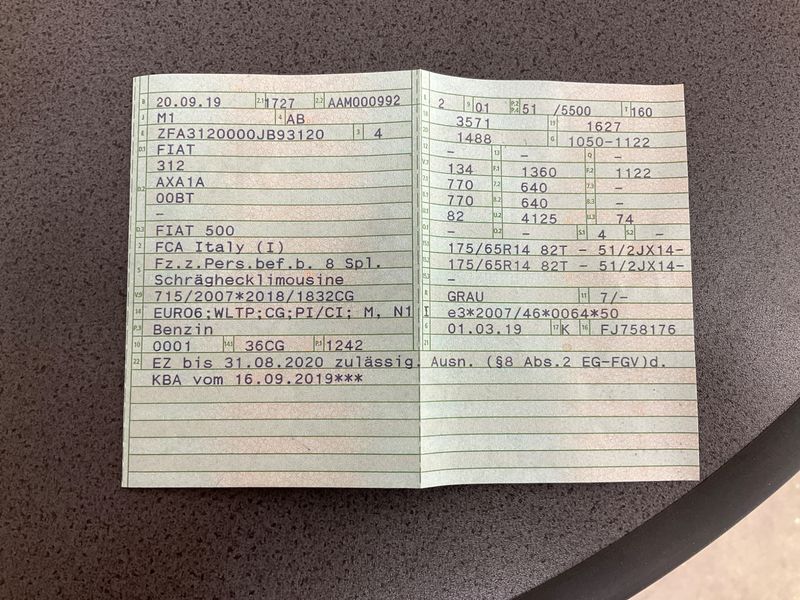 B 20.09.19 2.1 1727 2.2 AAM000992
J M1 4 AB
E ZFA3120000JB93120 3 4
D.1 FIAT
312
D.2 AXA1A
00BT
-
D.3 FIAT 500
2 FCA Italy (I)
5 Fz.z.Pers.bef.b. 8 Spl.
Schräghecklimousine
V.9 715/2007*2018/1832CG
14 EURO6;WLTP;CG;PI/CI; M, N1 I
P.3 Benzin
10 0001 14.1 36CG P.1 1242
22 EZ bis 31.08.2020 zulässig. Ausn. (§8 Abs.2 EG-FGV)d.
KBA vom 16.09.2019***
L 2 9 01 P.2 P.4 51 /5500 T 160
18 3571 19 1627
20 1488 G 1050-1122
12 - 13 - Q -
V.7 134 F.1 1360 F.2 1122
7.1 770 7.2 640 7.3 -
8.1 770 8.2 640 8.3 -
U.1 82 U.2 4125 U.3 74
O.1 - O.2 - S.1 4 S.2 -
15.1 175/65R14 82T - 51/2JX14-
15.2 175/65R14 82T - 51/2JX14-
15.3 -
R GRAU 11 7/-
K e3*2007/46*0064*50
6 01.03.19 17 K 16 FJ758176
21